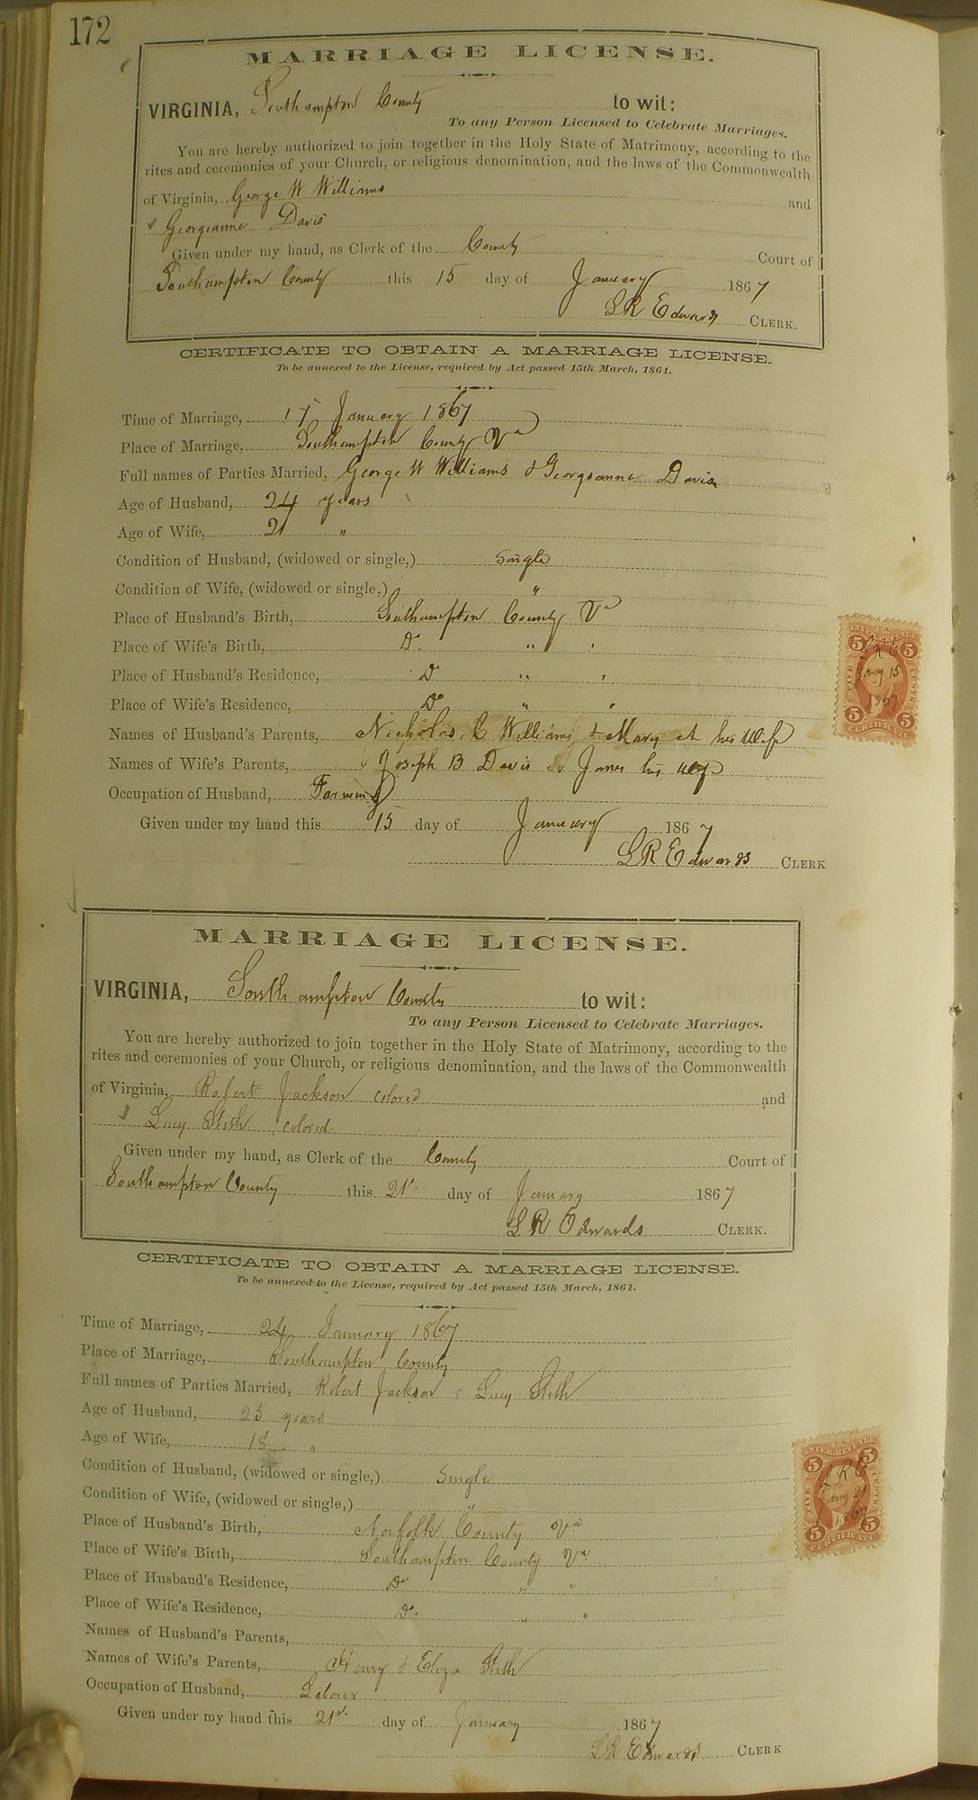 172
MARRIAGE LICENSE.
VIRGINIA, Southampton County to wit:
To any Person Licensed to Celebrate Marriages.
You are hereby authorized to join together in the Holy State of Matrimony, according to the
rites and ceremonies of your Church, or religious denomination, and the laws of the Commonwealth
of Virginia, George W Williams and
Georgeanna Davis
Given under my hand, as Clerk of the County Court of
Southampton County this 15 day of January 1867
LR Edwards CLERK.
CERTIFICATE TO OBTAIN A MARRIAGE LICENSE.
To be annexed to the License, required by Act passed 15th March, 1861.
Time of Marriage, 17 January 1867
Place of Marriage, Southampton County Va
Full names of Parties Married, George W Williams & Georgeanna Davis
Age of Husband, 24 years
Age of Wife, 21 "
Condition of Husband, (widowed or single,) Single
Condition of Wife, (widowed or single,) "
Place of Husband's Birth, Southampton County Va
Place of Wife's Birth, Do " "
Place of Husband's Residence, Do " "
Place of Wife's Residence, Do " "
Names of Husband's Parents, Nicholas C Williams & Mary A his Wife
Names of Wife's Parents, Joseph B Davis & Janes his Wife
Occupation of Husband, Farming
Given under my hand this 15 day of January 1867
LR Edwards CLERK
INTER. REVENUE
5 5
LRE
Jany 15
1867
FIVE CENTS
5 5
CERTIFICATE
MARRIAGE LICENSE.
VIRGINIA, Southampton County to wit:
To any Person Licensed to Celebrate Marriages.
You are hereby authorized to join together in the Holy State of Matrimony, according to the
rites and ceremonies of your Church, or religious denomination, and the laws of the Commonwealth
of Virginia, Robert Jackson colored and
Lucy Stith colored
Given under my hand, as Clerk of the County Court of
Southampton County this 21st day of January 1867
LR Edwards CLERK.
CERTIFICATE TO OBTAIN A MARRIAGE LICENSE.
To be annexed to the License, required by Act passed 15th March, 1861.
Time of Marriage, 24 January 1867
Place of Marriage, Southampton County
Full names of Parties Married, Robert Jackson & Lucy Stith
Age of Husband, 25 years
Age of Wife, 18 "
Condition of Husband, (widowed or single,) Single
Condition of Wife, (widowed or single,) "
Place of Husband's Birth, Norfolk County Va
Place of Wife's Birth, Southampton County Va
Place of Husband's Residence, Do " "
Place of Wife's Residence, Do " "
Names of Husband's Parents,
Names of Wife's Parents, Henry & Eliza Stith
Occupation of Husband, Laborer
Given under my hand this 21st day of January 1867
LR Edwards CLERK
INTER. REVENUE
5 5
LRE
Jany 21
1867
FIVE CENTS
5 5
CERTIFICATE